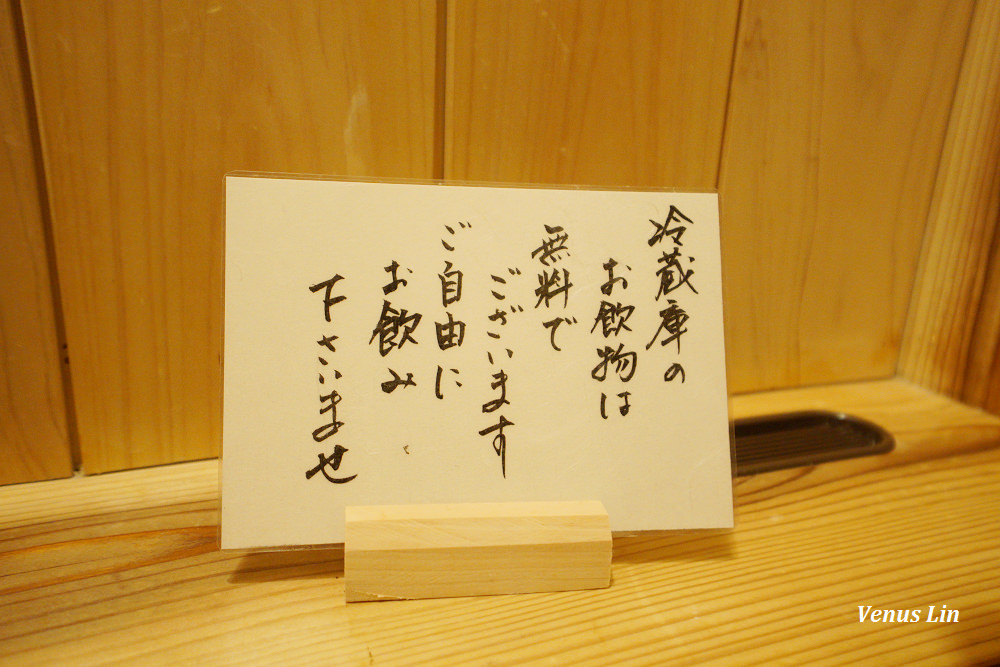 冷蔵庫の
お飲物は
無料で
ございます
ご自由に
お飲み
下さいませ
Venus Lin